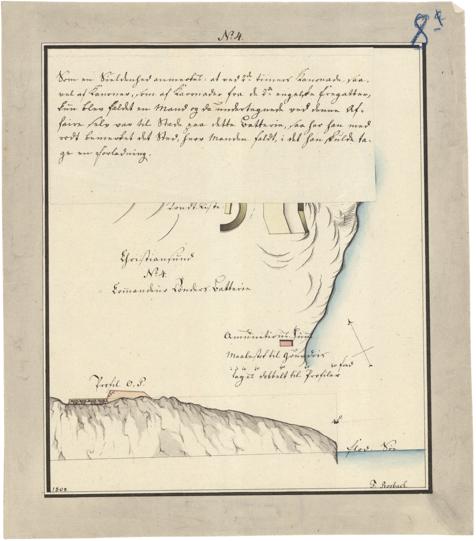 No 4.
8
Som en Sieldenhed anmerkes: at ved timers Kanonade, saa-
vel af Kanoner, som af Karonader fra de engelske Fregatter,
kun blev faldet en Mand og da undertegnede ved denne Af-
faire selv var til Stede paa dette Batterie, saa har han med
rødt bemerket det Sted, hvor Manden faldt, i det han skulde ta-
ge en Forladning.
Christiansund
No 4.
Commandeur Sønders Batterie
Amunitions
Maalestok til Grundris
tages dobbelt til Profiler
Profil
1808
F. Rosbach